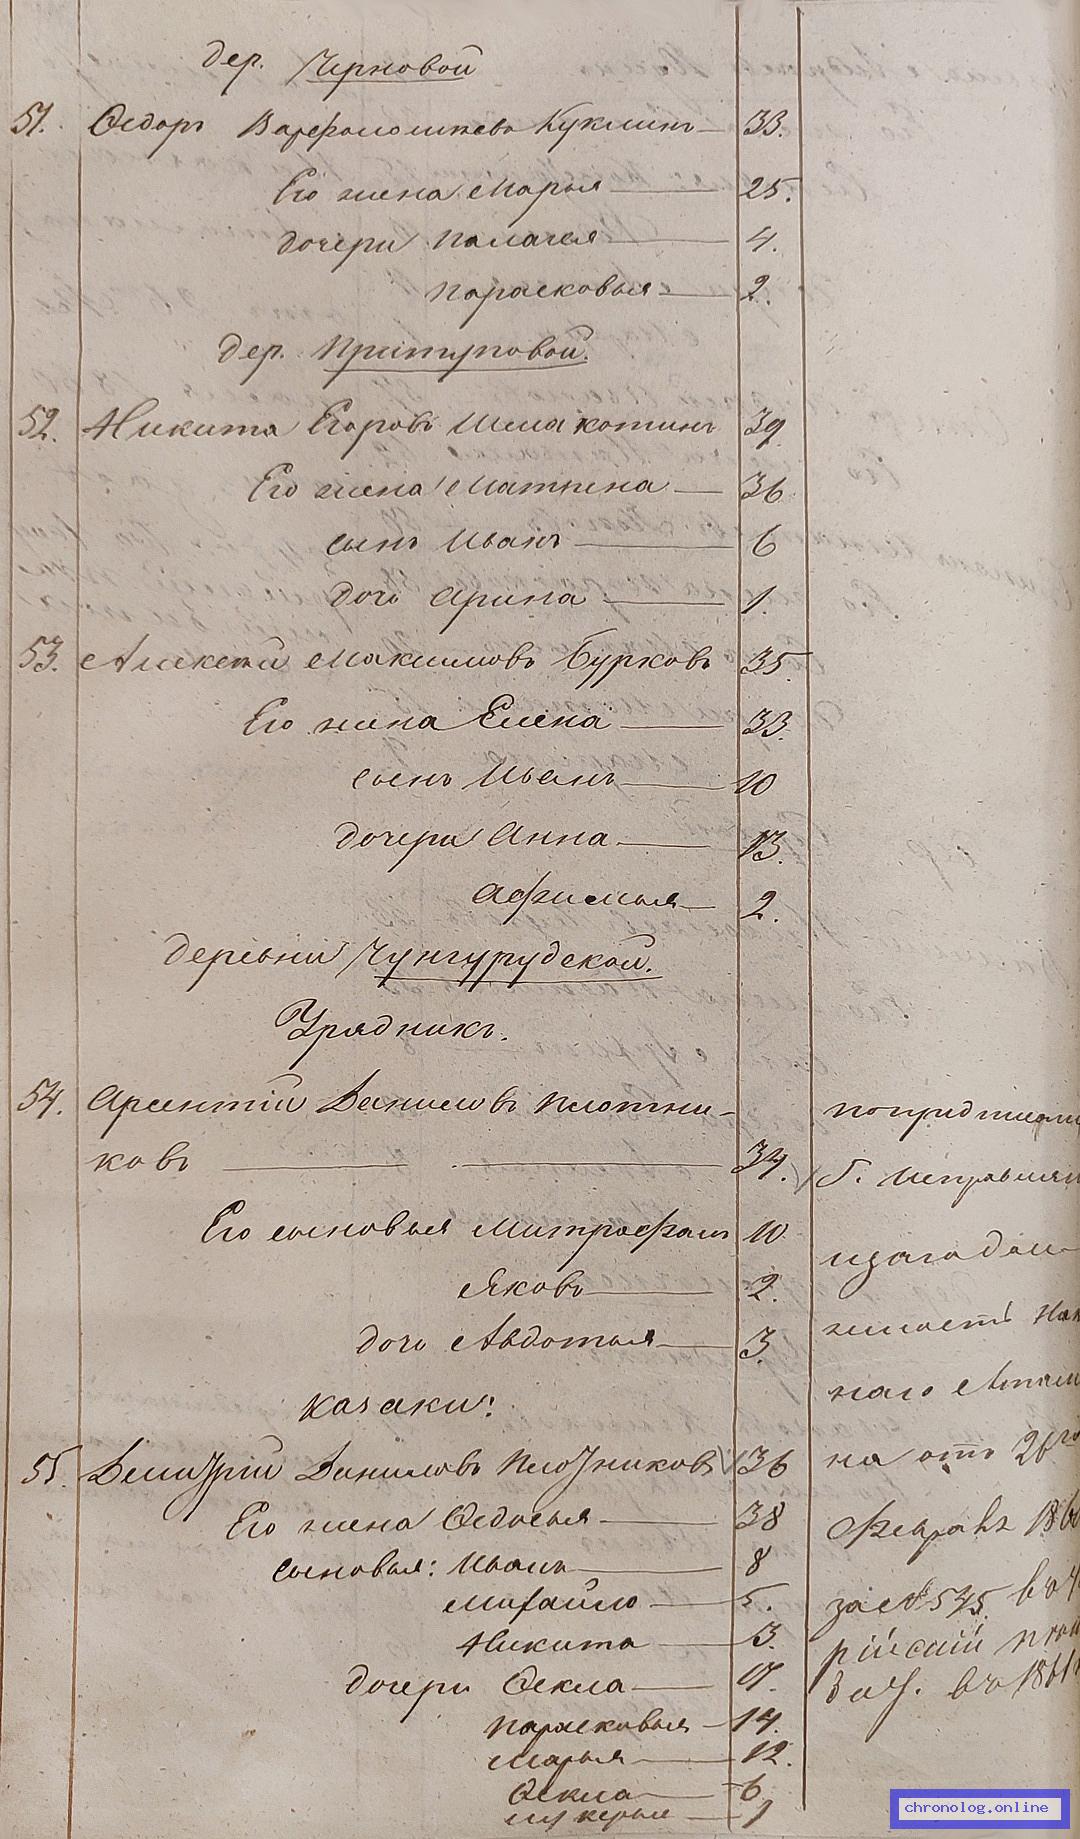 дер. Черновой
51. Ѳедоръ Варфоломѣевъ Куклинъ 33.
Его жена Марья 25.
дочери Палагея 4.
Парасковья 2.
дер. Притуповой.
52. Никита Егоровъ Шелакотинъ 39
Его жена Матрена 36
сынъ Иванъ 6
дочь Арина 1.
53. Алексей Максимовъ Бурковъ 35.
Его жена Елена 33.
сынъ Иванъ 10
дочери Анна 13.
Афимья 2.
деревни Чунгурудской.
Урядникъ.
54. Арсентій Даниловъ Плотни-
ковъ 34.
Его сыновья Митрофанъ 10
Яковъ 2.
дочь Авдотья 3.
казаки:
55. Демитрій Даниловъ Плотниковъ 36
Его жена Ѳедосья 38
сыновья: Иванъ 8
Михайло 5.
Никита 3.
дочери Ѳекла 17.
Парасковья 14.
Марья 12.
Ѳекла 6
1
на отъ 26го
Февраля 186
за № 575. въ
въ 1861
chronolog.online